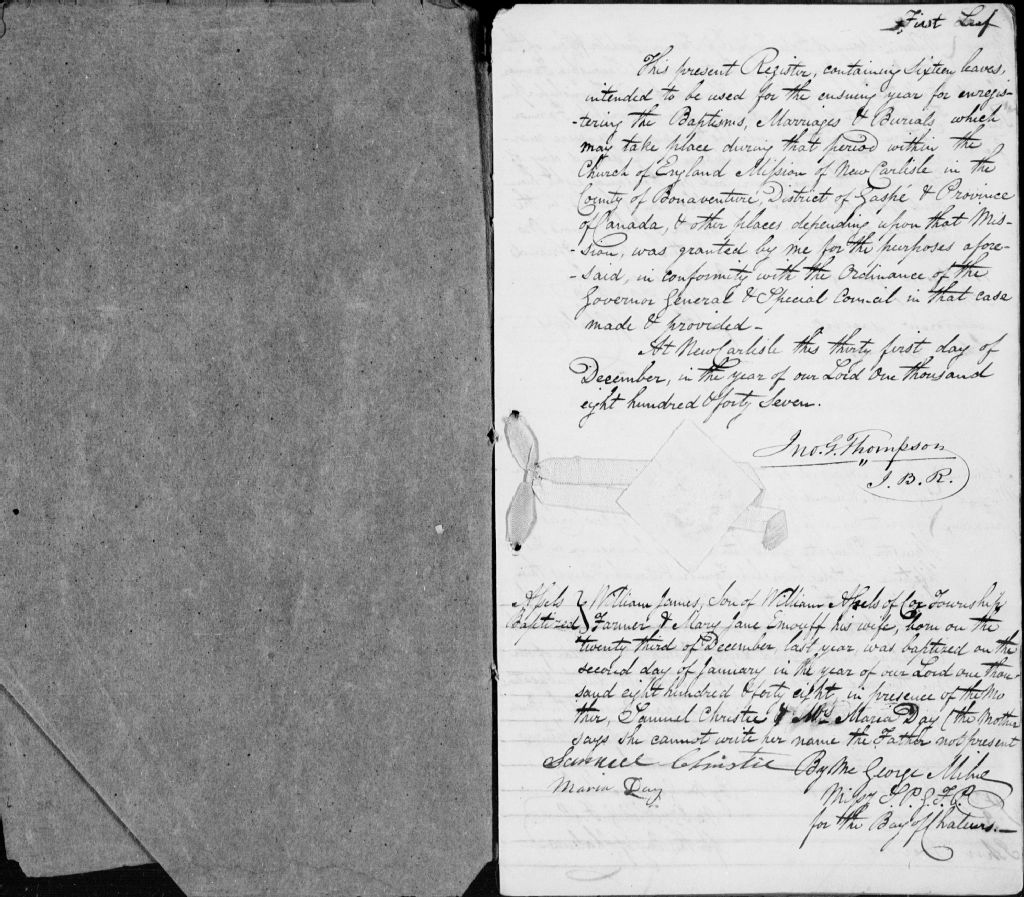 First Leaf
This present Register, containing Sixteen leaves,
intended to be used for the ensuing year for enregis-
-tering the Baptisms, Marriages & Burials which
may take place during that period within the
Church of England Mission of New Carlisle in the
County of Bonaventure, District of Gaspé & Province
of Canada, & other places depending upon that Mis-
-sion, was granted by me for the purposes afore-
-said, in conformity with the Ordinance of the
Governor General & Special Council in that case
made & provided-
At New Carlisle this thirty first day of
December, in the year of our Lord One thousand
eight hundred & forty Seven.
Jno. G. Thompson
J. B. R.
Baptized
William James, Son of William of Cox Township
Farmer & Mary Jane his wife, born on the
twenty third of December last year, was baptized on the
second day of January in the year of our Lord one thou-
sand eight hundred & forty eight, in presence of the Mo
ther, Samuel Christie & Mrs Maria Day (the Mother
says she cannot write her name the Father not present
Samuel Christie By Me George Milne
Maria Day Missy S. P. G. F. P.
for the Bay of Chaleurs.-